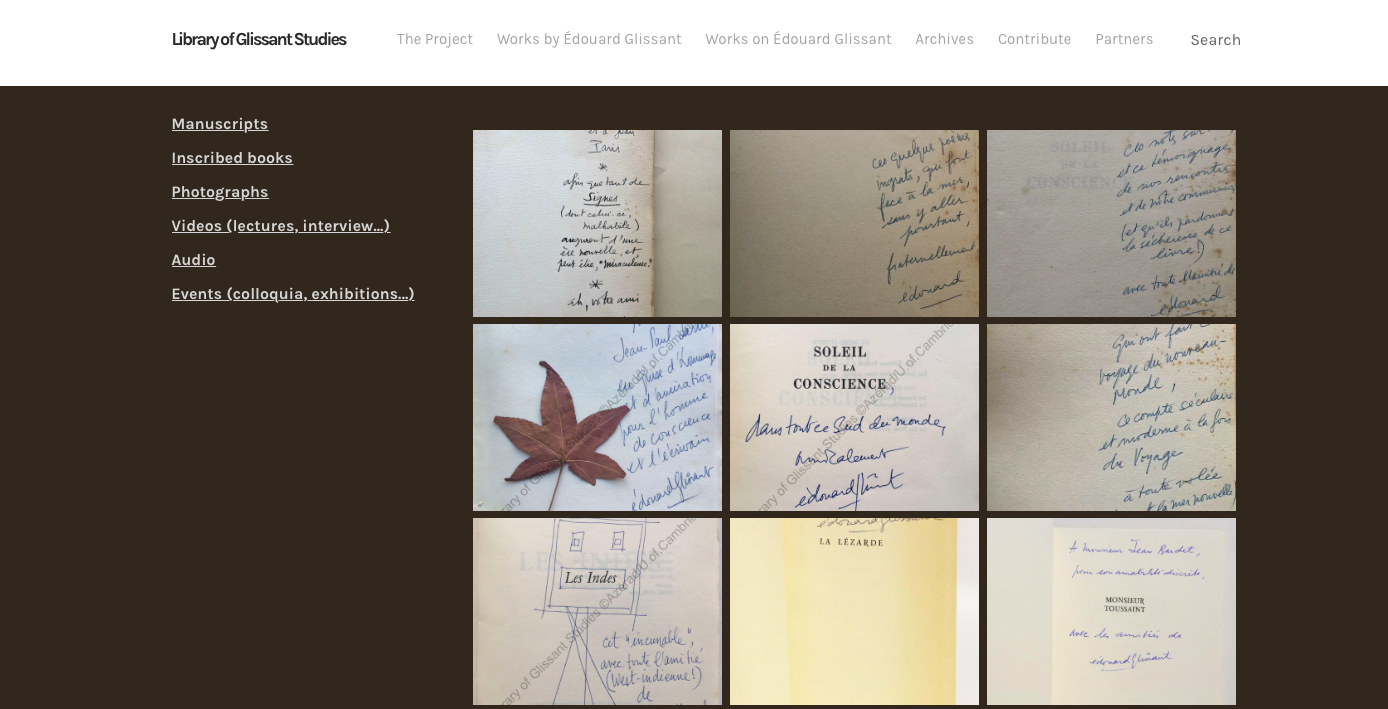 Library of Glissant Studies
The Project
Works by Édouard Glissant
Works on Édouard Glissant
Archives
Contribute
Partners
Search
Manuscripts
Inscribed books
Photographs
Videos (lectures, interview...)
Audio
Events (colloquia, exhibitions...)
et à Jean
Paris
afin que tant de
Signes
(dont celui-ci,
malhabile)
augurent d'une
ère nouvelle, et,
peut être, "miraculeuse."
eh, votre ami
ces quelques poèmes
ingrats, qui font
face à la mer,
sans y aller
pourtant,
fraternellement
édouard
SOLEIL
DE LA
CONSCIENCE
et ce témoignage
de nos rencontres
et de notre
(et qu'ils pardonnent
la sécheresse de ce
livre!)
avec toute l'amitié de
édouard
Jean Paul
d'hommage
et d'admiration
pour l'homme
de conscience
et l'écrivain
édouard glissant
SOLEIL
DE LA
CONSCIENCE,
dans tout ce Sud du monde,
amicalement
édouard glissant
Qui ont fait
voyage du nouveau-
Monde,
Ce compte séculaire
et moderne à la fois
du Voyage
à toute volée
et la mer nouvelle
Les Indes
cet "incunable",
avec toute l'amitié
(West-indienne!)
de
édouard glissant
LA LÉZARDE
A Monsieur Jean
pour son amabilité discrète,
MONSIEUR
TOUSSAINT
avec les amitiés de
édouard glissant